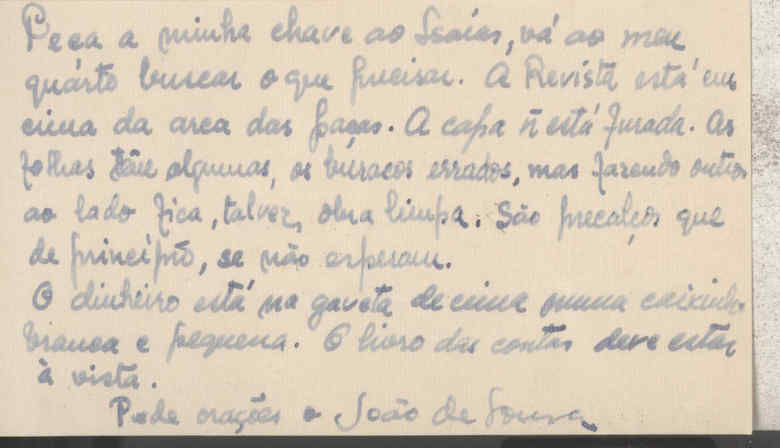 Peça a minha chave ao Isaías, vá ao meu
quárto buscar o que precisar. A Revista está em
cima da arca das pagas. A capa ñ está furada. As
folhas têm algumas, os búracos errados, mas fazendo outros
ao lado fica, talvez, obra limpa. São precalços que
de princípio, se não esperam.
O dinheiro está na gaveta de cima numa caixinha
branca e pequena. O livro das contas deve estar
à vista.
Pede orações o João de Sousa